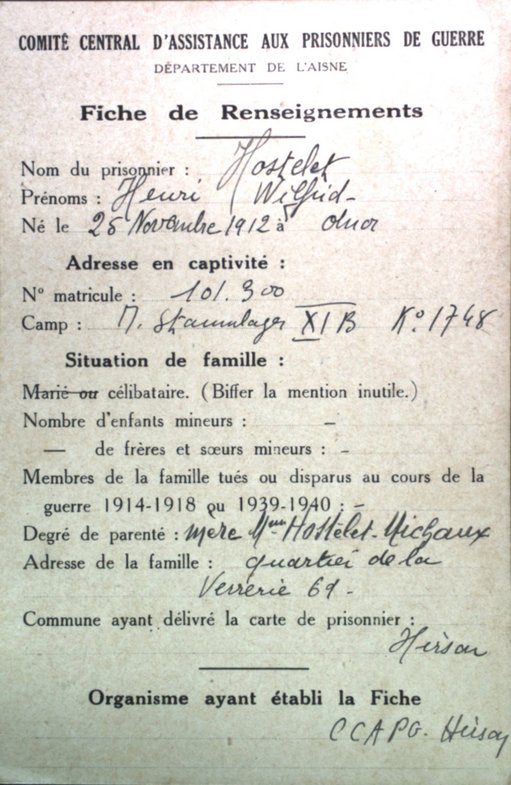 COMITÉ CENTRAL D'ASSISTANCE AUX PRISONNIERS DE GUERRE
DÉPARTEMENT DE L'AISNE
Fiche de Renseignements
Nom du prisonnier : Hostelet
Prénoms : Henri Wilfrid -
Né le 25 Novembre 1912 à
Adresse en captivité :
N° matricule : 101.300
Camp : M. Stammlager XI B K° 1748
Situation de famille :
Marié ou célibataire. (Biffer la mention inutile.)
Nombre d'enfants mineurs : -
— de frères et sœurs mineurs : -
Membres de la famille tués ou disparus au cours de la
guerre 1914-1918 ou 1939-1940 : -
Degré de parenté : mère Mme Hostelet-Michaux
Adresse de la famille : quartier de la
Verrerie 61 -
Commune ayant délivré la carte de prisonnier :
Hirson
Organisme ayant établi la Fiche
CCAPG. Hirson